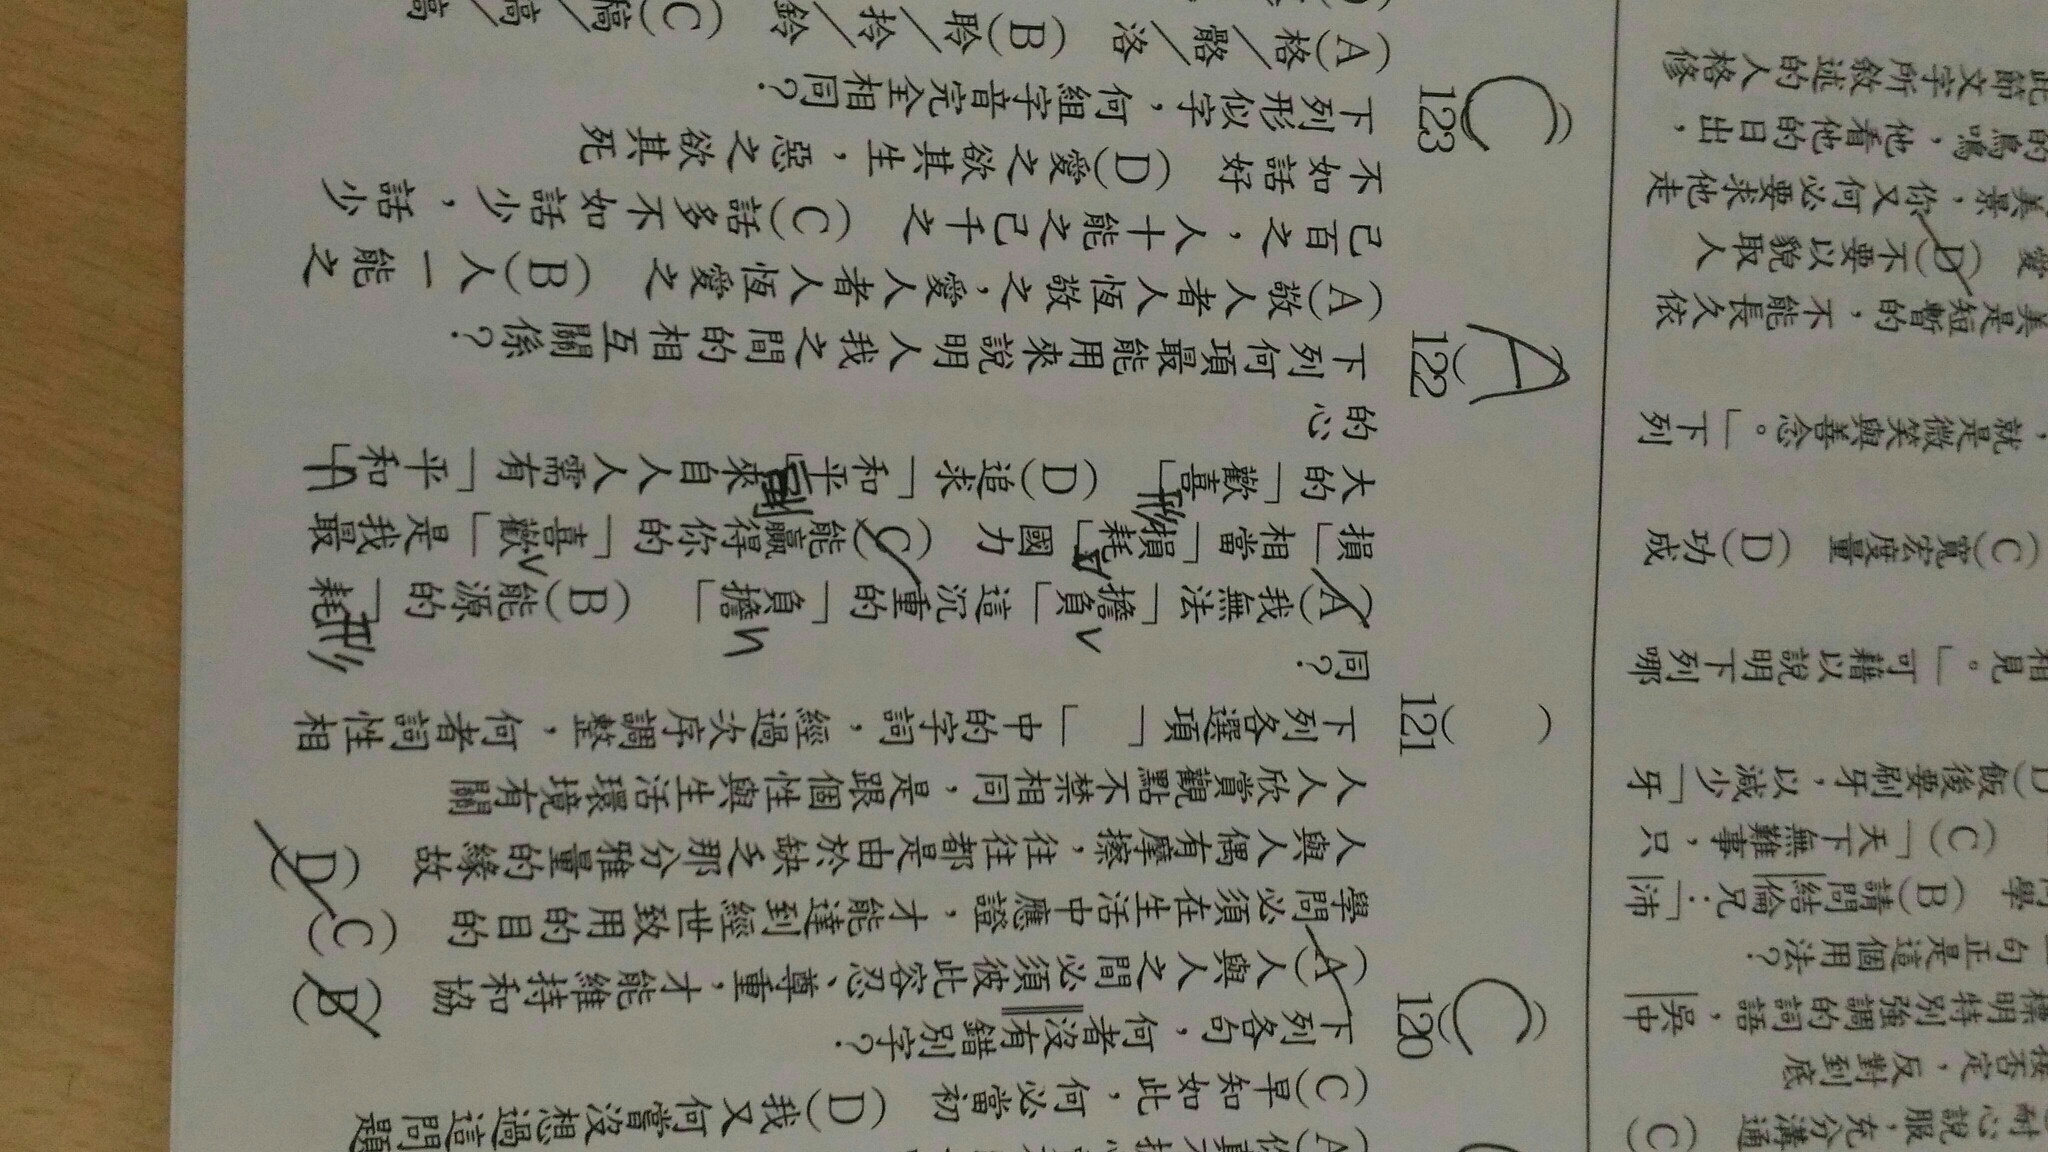 耐心說服，充分溝通　(C)
接否定，反對到底
標明特別強調的詞語，吳中
句正是這個用法？
學　(B)請問結倫兄：「沛
(C)「天下無難事，只
D)飯後要刷牙，以減少「牙
相見。」可藉以說明下列哪
(C)寬宏度量　(D)功成
，就是微笑與善念。」下列
美是短暫的，不能長久依
愛　(D)不要以貌取人
美景，你又何必要求他走
的鳥鳴，他看他的日出，
此節文字所敘述的人格修
(C)早知如此，何必當初　(D)我又何嘗沒想過這問題
(C)120 下列各句，何者沒有錯別字？
(A)人與人之間必須彼此容忍、尊重，才能維持和協　(B)
學問必須在生活中應證，才能達到經世致用的目的　(C)
人與人偶有摩擦，往往都是由於缺乏那分雅量的緣故　(D)
人人欣賞觀點不禁相同，是跟個性與生活環境有關
(　)121 下列各選項「　」中的字詞，經過次序調整，何者詞性相
同？
(A)我無法「擔負」這沉重的「負擔」　(B)能源的「耗
損」相當「損耗」國力　(C)能贏得你的「喜歡」是我最
大的「歡喜」　(D)追求「和平」來自人人需有「平和」
的心
(A)122 下列何項最能用來說明人我之間的相互關係？
(A)敬人者人恆敬之，愛人者人恆愛之　(B)人一能之
己百之，人十能之己千之　(C)話多不如話少，話少
不如話好　(D)愛之欲其生，惡之欲其死
(C)123 下列形似字，何組字音完全相同？
(A)格／骼／洛　(B)聆／拎／鈴　(C)